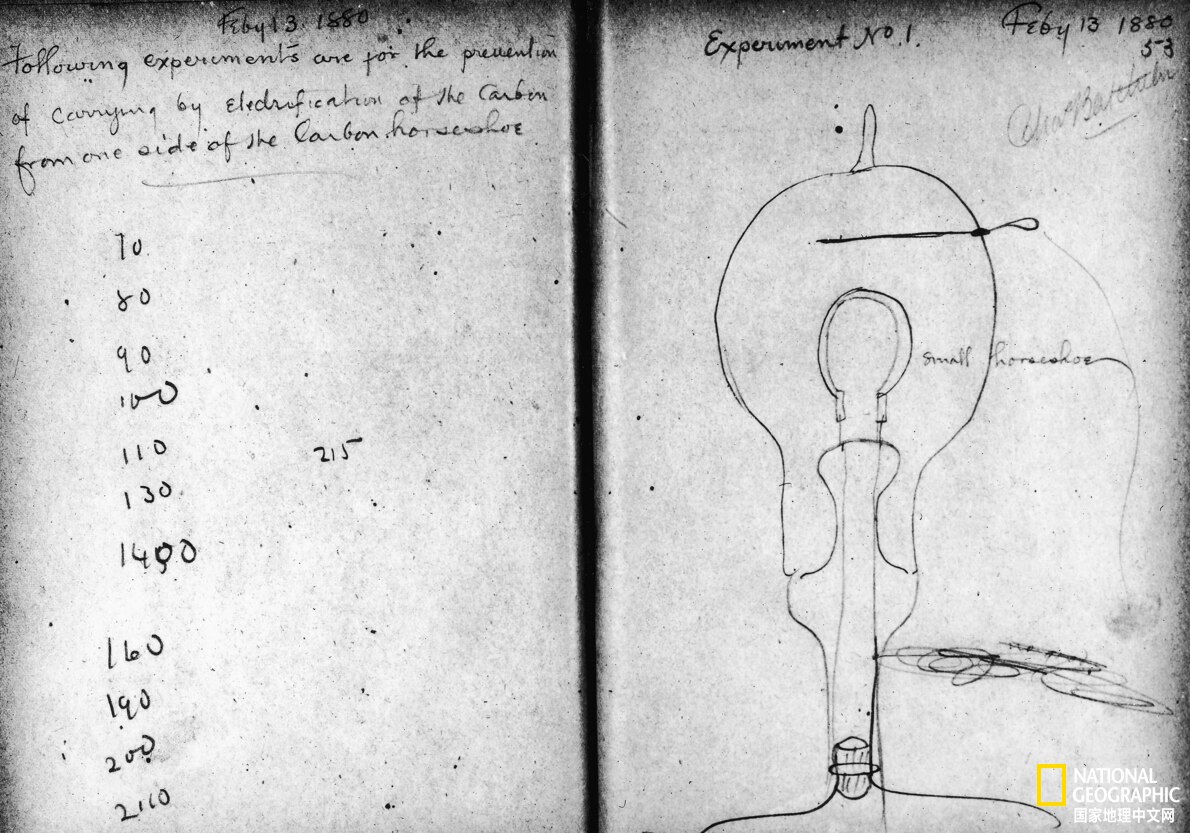 Feby 13. 1880
Following experiments are for the prevention
of carrying by Electrification of the Carbon
from one side of the Carbon horseshoe
70
80
90
100
110
215
130
160
190
200
Experiment No. 1.
Feby 13 1880
53
small horseshoe
NATIONAL
GEOGRAPHIC
国家地理中文网